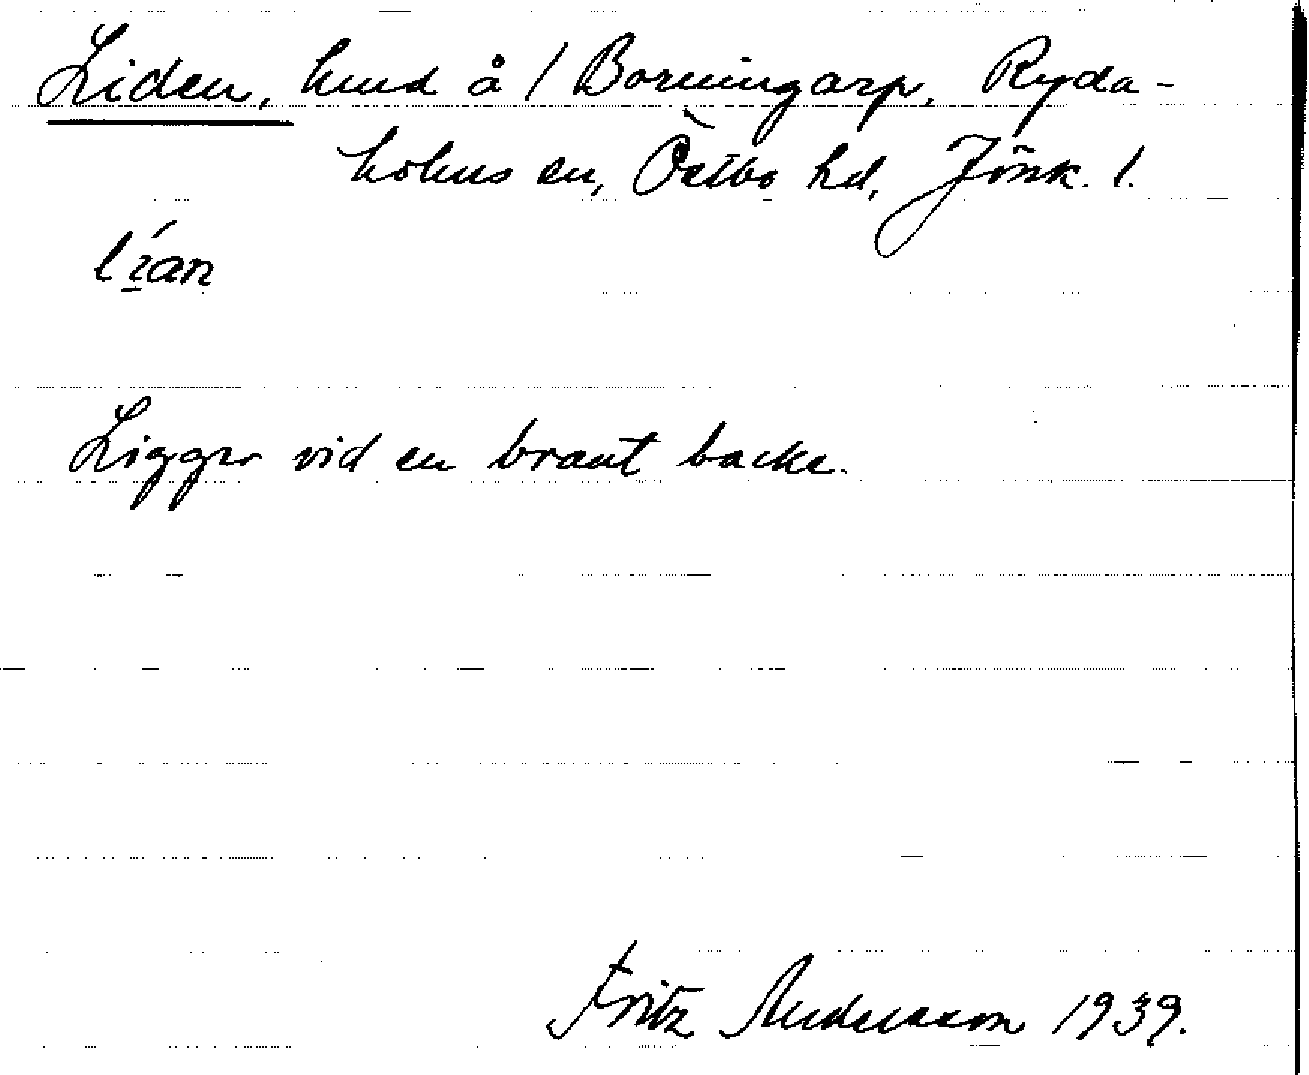 Liden, hmd å 1 Borningarp, Ryda-
holms sn, Östbo hd, Jönk. l.
Ligger vid en brant backe.
Fritz Andersson 1939.